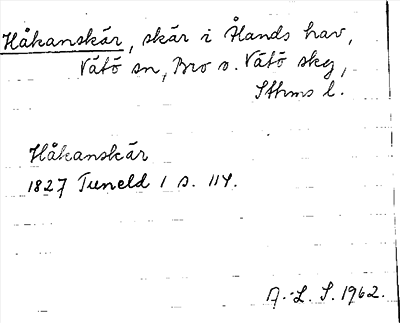 Håkanskär, skär i Ålands hav,
Vätö sn, Bro o. Vätö skg,
Sthms l.
Håkanskär
1827 Tuneld 1 s. 114.
A.-L. S. 1962.